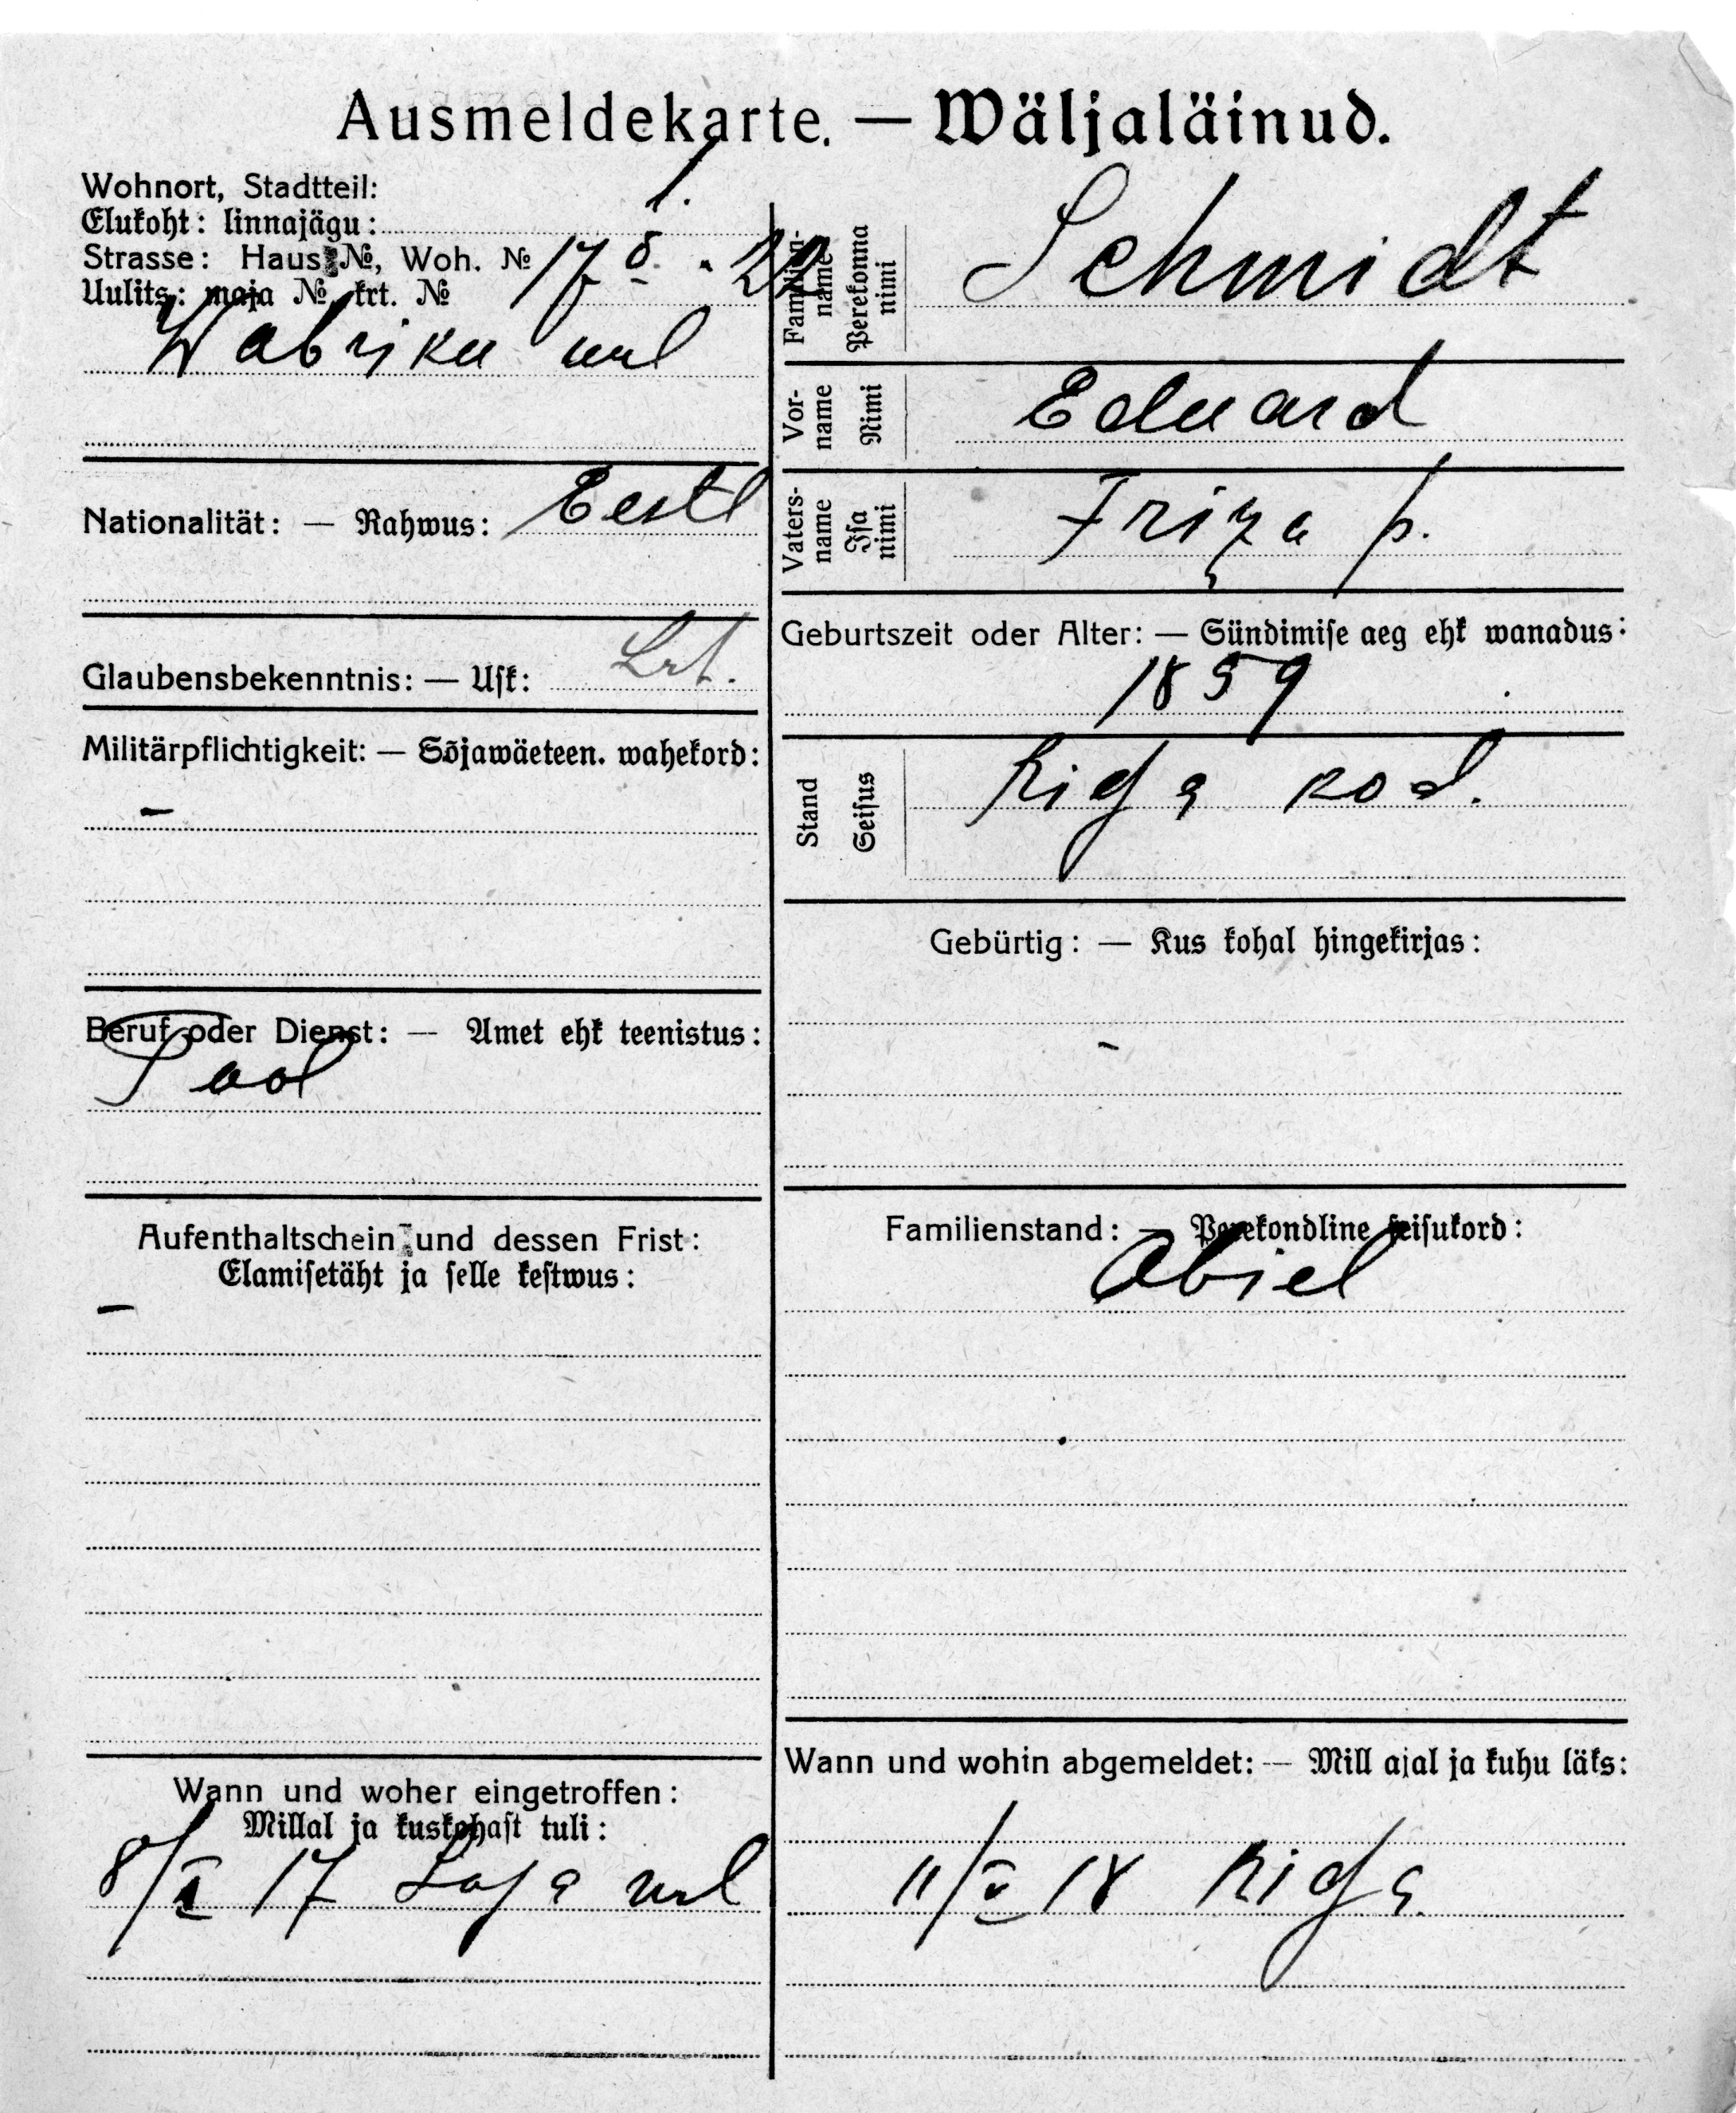 Ausmeldekarte. — Wäljaläinud.
Wohnort, Stadtteil:
Elukoht: linnajägu: 1.
Strasse: Haus №, Woh. №
Uulits: maja №, krt. № 17 8 - 22
Wabriku uul
Nationalität: — Rahwus: Eestl
Glaubensbekenntnis: — Usk: Lut.
Militärpflichtigkeit: — Sõjawäeteen. wahekord:
–
Beruf oder Dienst: — Amet ehk teenistus:
Pool
Aufenthaltschein und dessen Frist:
Elamisetäht ja selle kestwus:
–
Wann und woher eingetroffen:
Millal ja kuskohast tuli:
17 uul
Familien-name
Perekonna nimi
Schmidt
Vor-name
Nimi
Eduard
Vaters-name
Isa nimi
Friza p.
Geburtszeit oder Alter: — Sündimise aeg ehk wanadus:
1859
Stand
Seisus
Riga kod.
Gebürtig: — Kus kohal hingekirjas:
-
Familienstand: — Perekondline seisukord:
Abiel
Wann und wohin abgemeldet: — Mill ajal ja kuhu läks:
11/V 18 Riga